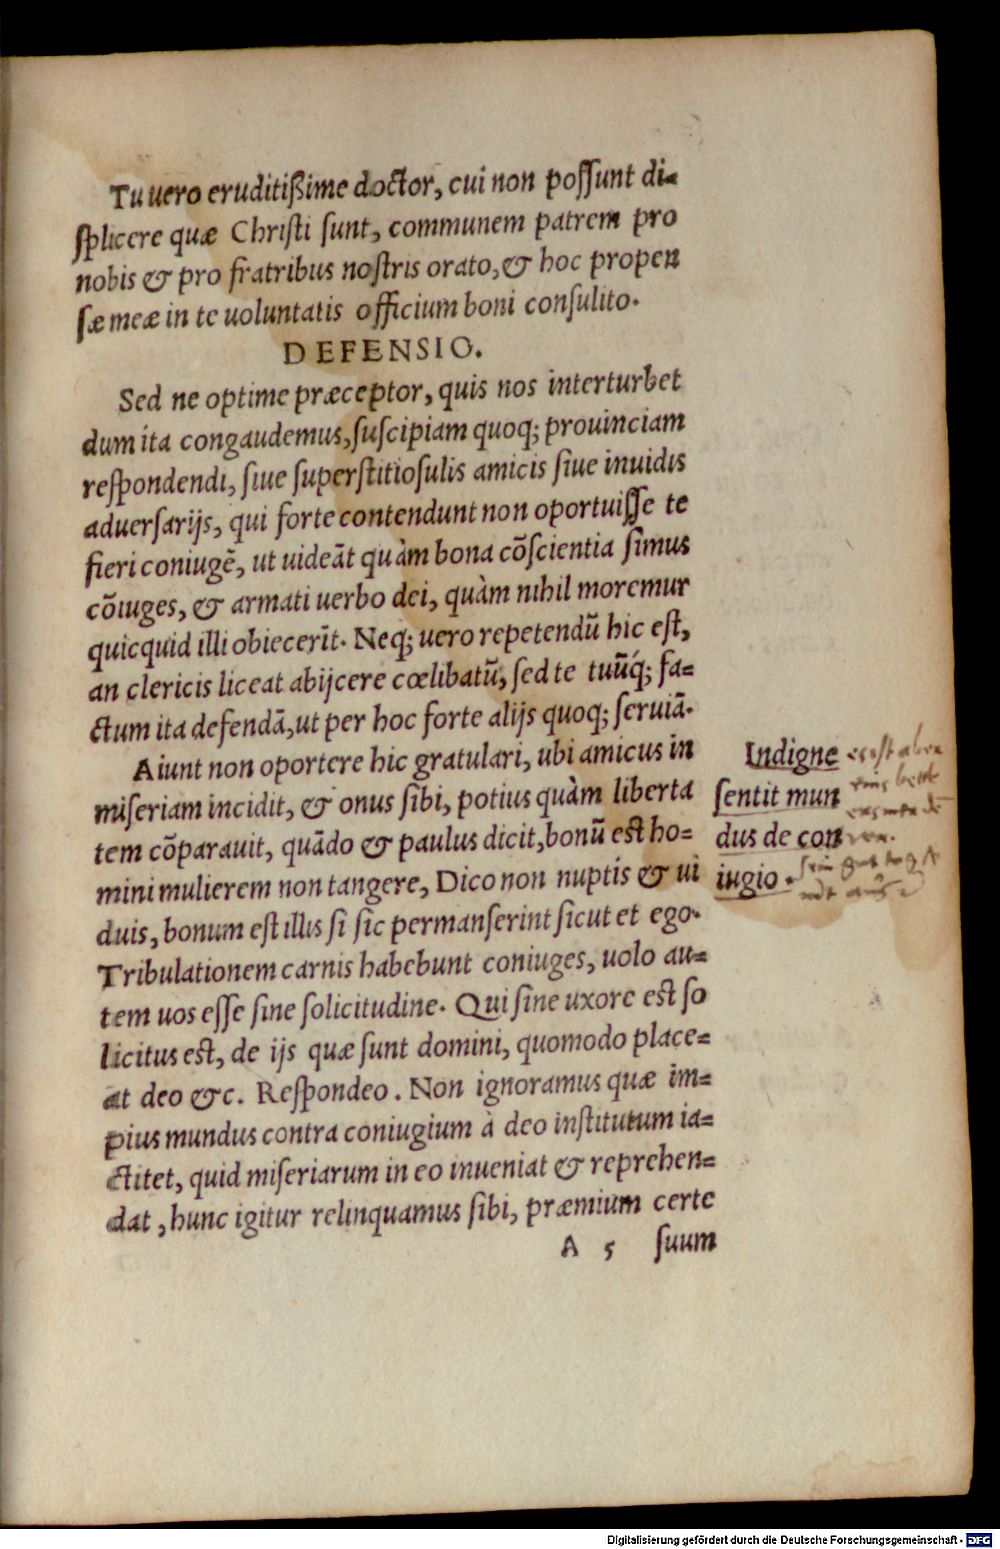 Tu uero eruditißime doctor, cui non poſſunt di-
ſplicere quæ Chriſti ſunt, communem patrem pro
nobis & pro fratribus noſtris orato, & hoc propen
ſæ meæ in te uoluntatis officium boni conſulito.
DEFENSIO.
Sed ne optime præceptor, quis nos interturbet
dum ita congaudemus, ſuſcipiam quoq; prouinciam
reſpondendi, ſiue ſuperſtitioſulis amicis ſiue inuidis
aduerſarijs, qui forte contendunt non oportuiſſe te
fieri coniugē, ut uideāt quàm bona cōſcientia ſimus
cōiuges, & armati uerbo dei, quàm nihil moremur
quicquid illi obiecerīt. Neq; uero repetendū hic eſt,
an clericis liceat abijcere cœlibatū, ſed te tuūq́; fa-
ctum ita defendā, ut per hoc forte alijs quoq; ſeruiā.
Aiunt non oportere hic gratulari, ubi amicus in
miſeriam incidit, & onus ſibi, potius quàm liberta
tem cōparauit, quādo & paulus dicit, bonū eſt ho-
mini mulierem non tangere, Dico non nuptis & ui
duis, bonum eſt illis ſi ſic permanſerint ſicut et ego.
Tribulationem carnis habebunt coniuges, uolo au-
tem uos eſſe ſine ſolicitudine. Qui ſine uxore eſt ſo
licitus eſt, de ijs quæ ſunt domini, quomodo place-
at deo &c. Reſpondeo. Non ignoramus quæ im-
pius mundus contra coniugium à deo inſtitutum ia-
ctitet, quid miſeriarum in eo inueniat & reprehen-
dat, hunc igitur relinquamus ſibi, præmium certe
A 5 ſuum
Indigne
ſentit mun
dus de con
iugio.
Digitalisierung gefördert durch die Deutsche Forschungsgemeinschaft - DFG